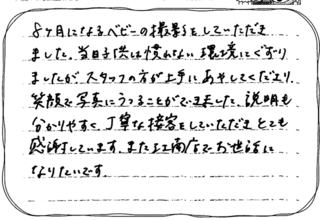 8ヶ月になるベビーの撮影をしていただき
ました。当日子供は慣れない環境にぐずり
ましたが、スタッフの方が上手にあやしてくださり
笑顔で写真にうつることができました。説明も
分かりやすく丁寧な接客をしていただきとても
感謝しています。また工商店でお世話に
なりたいです。